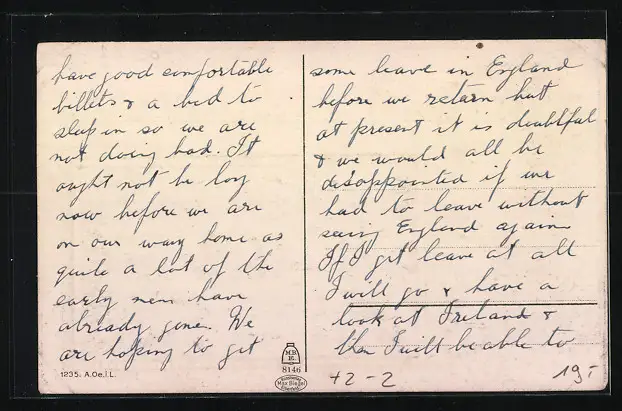 have good comfortable
billets & a bed to
sleep in so we are
not doing bad. It
ought not be long
now before we are
on our way home as
quite a lot of the
early men have
already gone. We
are hoping to get
1235. A.Oe.i.L.
some leave in England
before we return but
at present it is doubtful
& we would all be
disappointed if we
had to leave without
seeing England again
If I get leave at all
I will go & have a
look at Ireland &
then I will be able to
MB
K.
8146
Max Biegel
42-2
195-